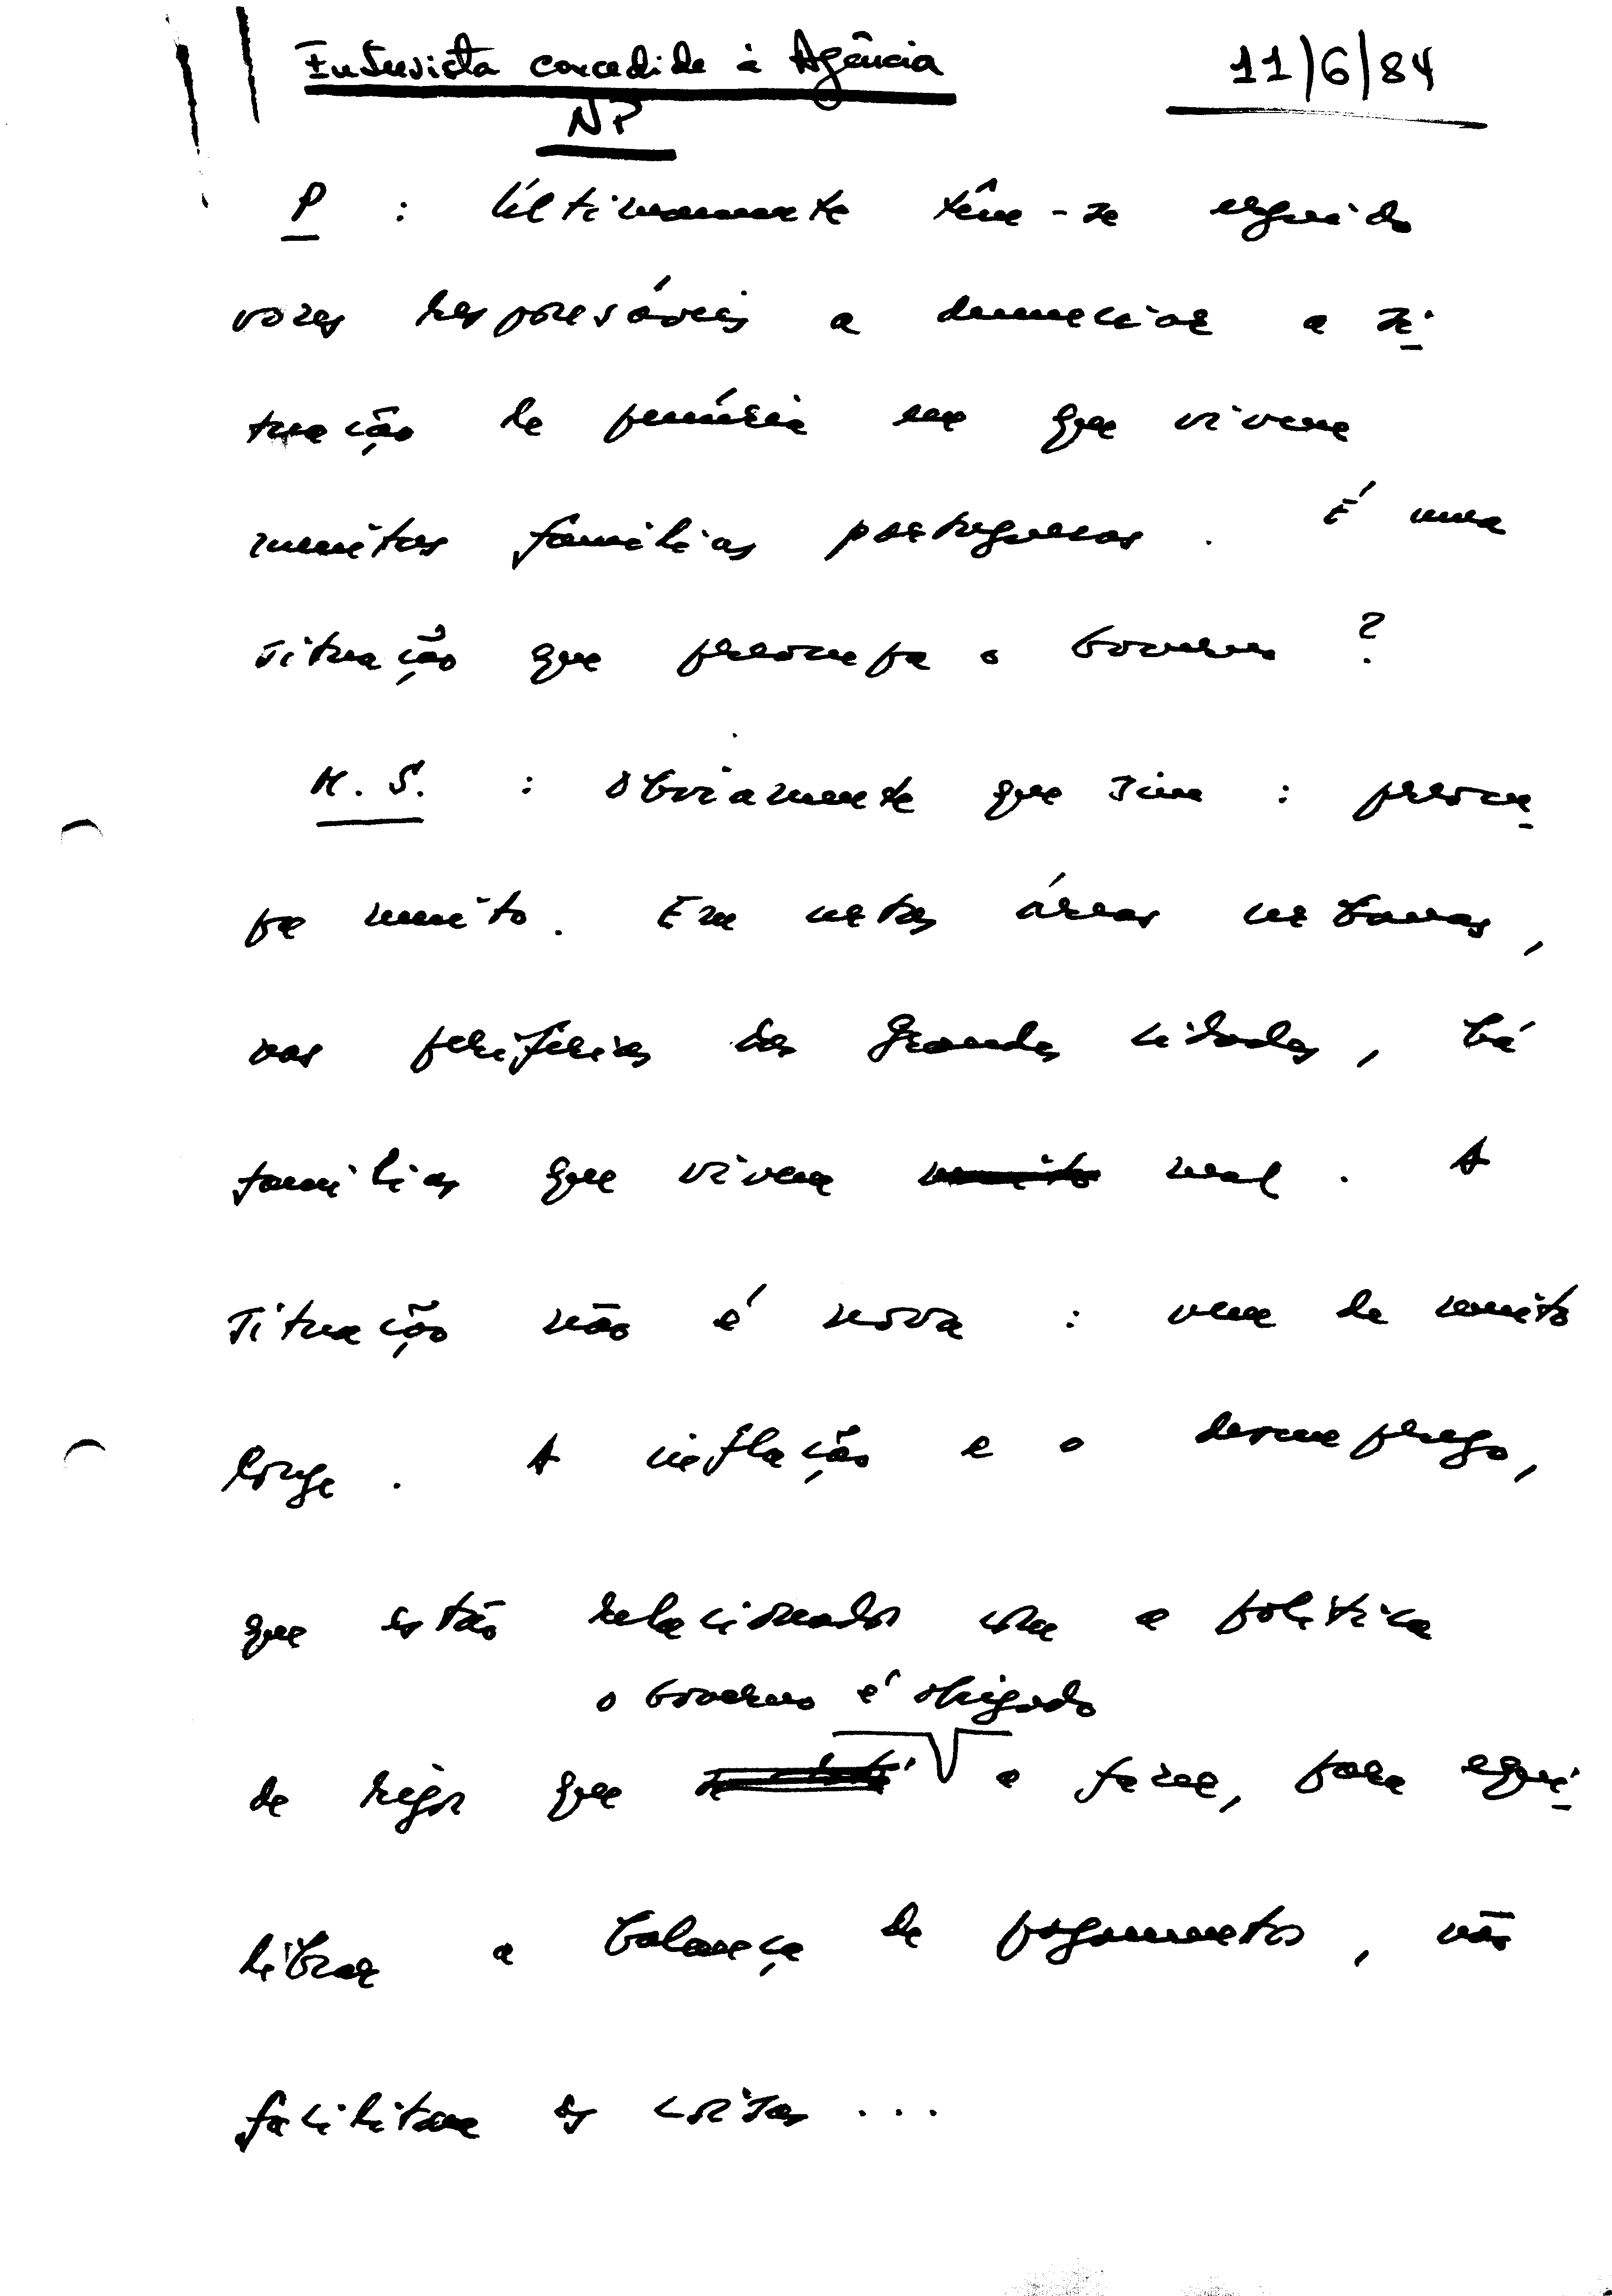 Entrevista concedida à Agência 11/6/84
NP
P : Últimamente têm-se erguido
vozes responsáveis a denunciar a si
tuação de penúria em que vivem
muitas famílias portuguesas. É uma
situação que preocupa o Governo ?
M. S. : Obviamente que sim : preocu
pa muito. Em certas áreas urbanas,
nas periferias das grandes cidades, há
famílias que vivem muito mal. A
situação não é nova : vem de muito
longe. A inflação e o desemprego,
que estão relacionados com a política
o Governo é obrigado
de rigor que a fazer, para equi
librar a balança de pagamentos, não
facilitam as coisas ...